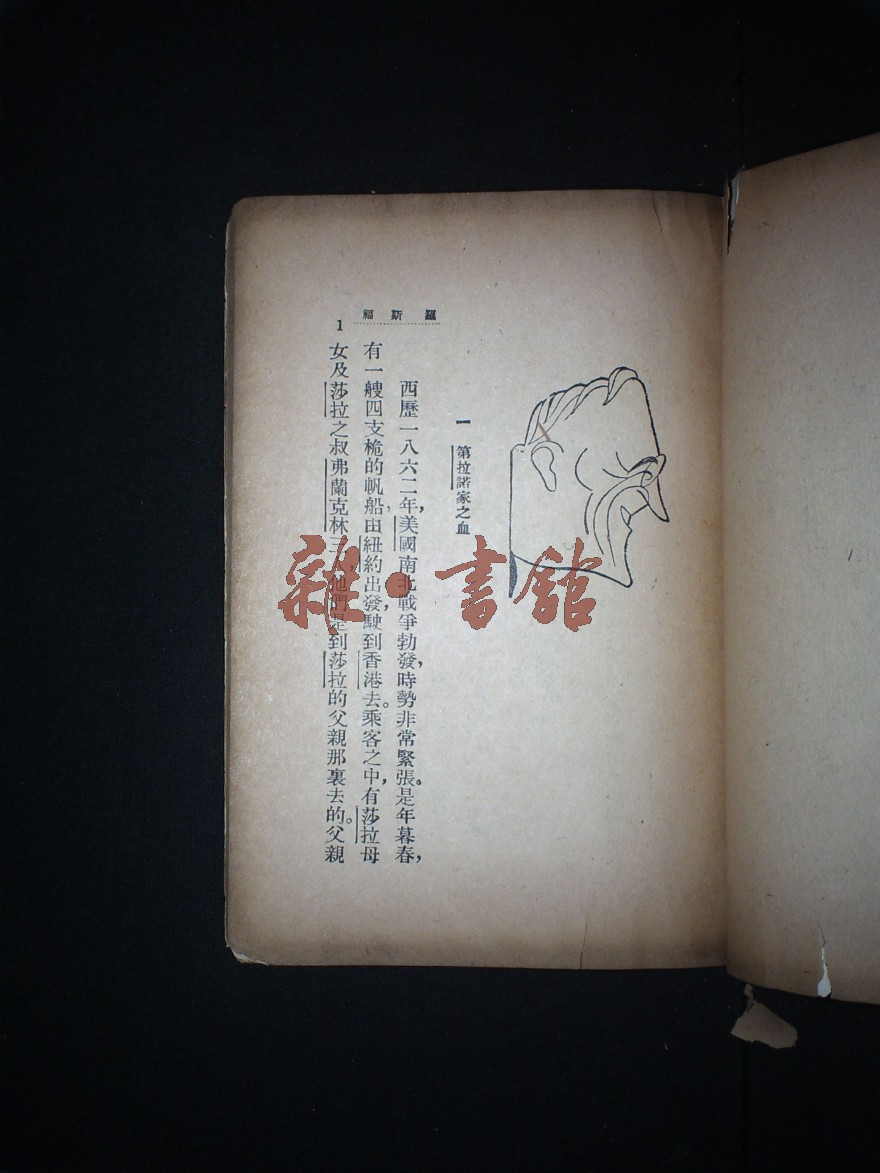 羅斯福
1
一 第拉諾家之血
西歷一八六二年，美國南北戰爭勃發，時勢非常緊張。是年暮春，
有一艘四支桅的帆船，由紐約出發，駛到香港去。乘客之中，有莎拉母
女及莎拉之叔弗蘭克林三人，他們是到莎拉的父親那裏去的。父親
雜·書館